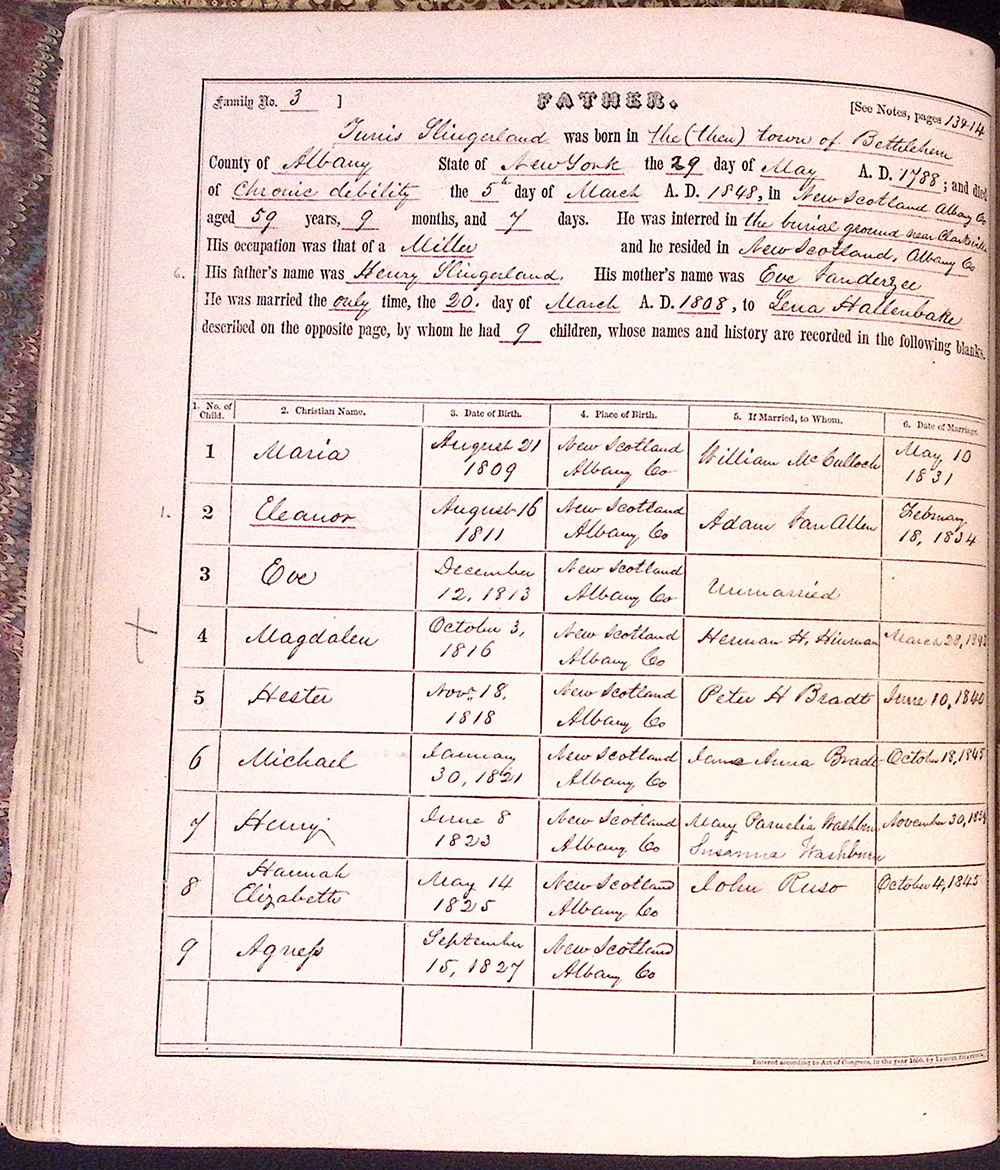 Family No. 3 ]
FATHER.
[See Notes, pages 13&14
Tunis Slingerland was born in the (then) town of Bethlehem
County of Albany State of New York the 29 day of May A. D. 1788; and died
of Chronic debility the 5th day of March A. D. 1848, in New Scotland Albany Co
aged 59 years, 9 months, and 7 days. He was interred in the burial ground near Clarksville
His occupation was that of a Miller and he resided in New Scotland, Albany Co
6. His father's name was Henry Slingerland. His mother's name was Eve Vanderzee
He was married the only time, the 20. day of March A. D. 1808, to Lena Hallenbake
described on the opposite page, by whom he had 9 children, whose names and history are recorded in the following blanks.
1. No. of Child. 2. Christian Name. 3. Date of Birth. 4. Place of Birth. 5. If Married, to Whom. 6. Date of Marriage.
1 Maria August 21 1809 New Scotland Albany Co William McCulloch May 10 1831
1. 2 Eleanor August 16 1811 New Scotland Albany Co Adam Van Allen February 18, 1834
3 Eve December 12, 1813 New Scotland Albany Co Unmarried
4 Magdalen October 3, 1816 New Scotland Albany Co Herman H. Hinman March 28,
5 Hester Novr 18, 1818 New Scotland Albany Co Peter H Bradt June 10, 1840
6 Michael January 30, 1821 New Scotland Albany Co Jane Anna Bradt October 18, 1845
7 Henry June 8 1823 New Scotland Albany Co Mary Parnelia Washburn Susanna Washburn November 30,
8 Hannah Elizabeth May 14 1825 New Scotland Albany Co John Ruso October 4, 1845
9 Agness September 15, 1827 New Scotland Albany Co
Entered according to Act of Congress, in the year 1850, by